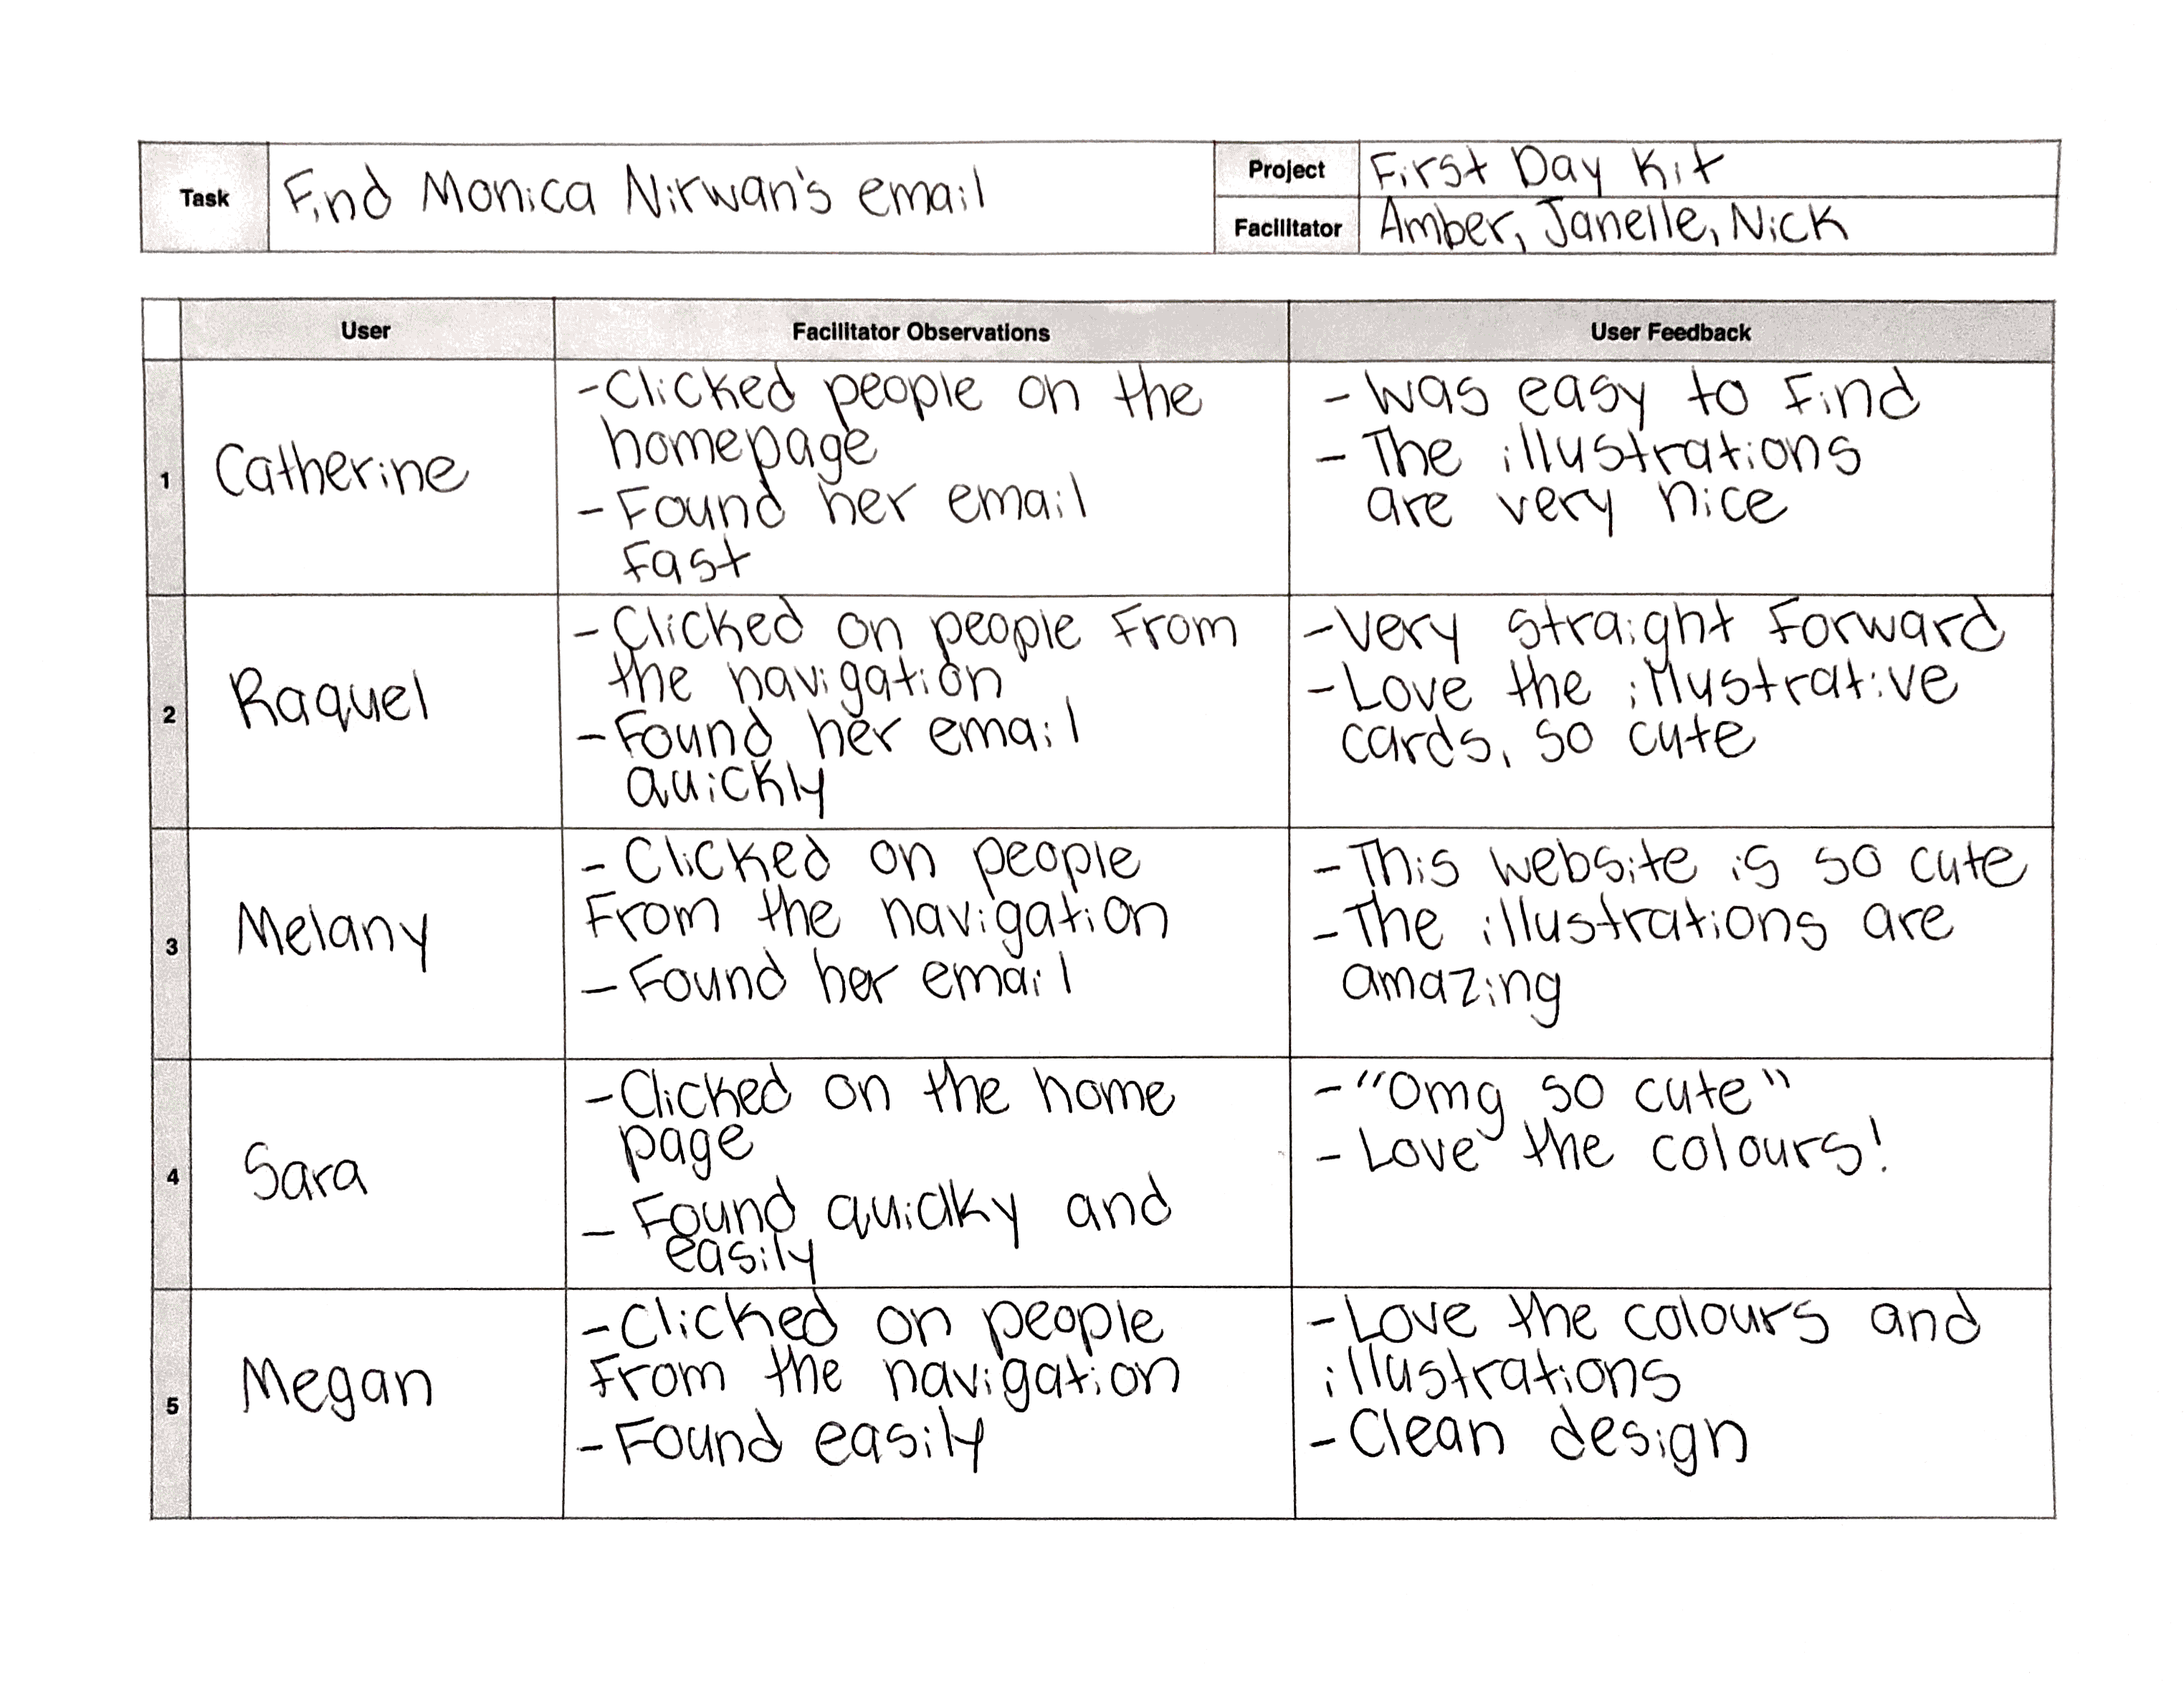 Task
Find Monica Nirwan's email
Project
First Day Kit
Facilitator
Amber, Janelle, Nick
User
Facilitator Observations
User Feedback
1
Catherine
- Clicked people on the
homepage
- Found her email
fast
- Was easy to find
- The illustrations
are very nice
2
Raquel
- Clicked on people from
the navigation
- Found her email
quickly
- Very straight forward
- Love the illustrative
cards, so cute
3
Melany
- Clicked on people
from the navigation
- Found her email
- This website is so cute
- The illustrations are
amazing
4
Sara
- Clicked on the home
page
- Found quickly and
easily
- "Omg so cute"
- Love the colours!
5
Megan
- Clicked on people
from the navigation
- Found easily
- Love the colours and
illustrations
- Clean design